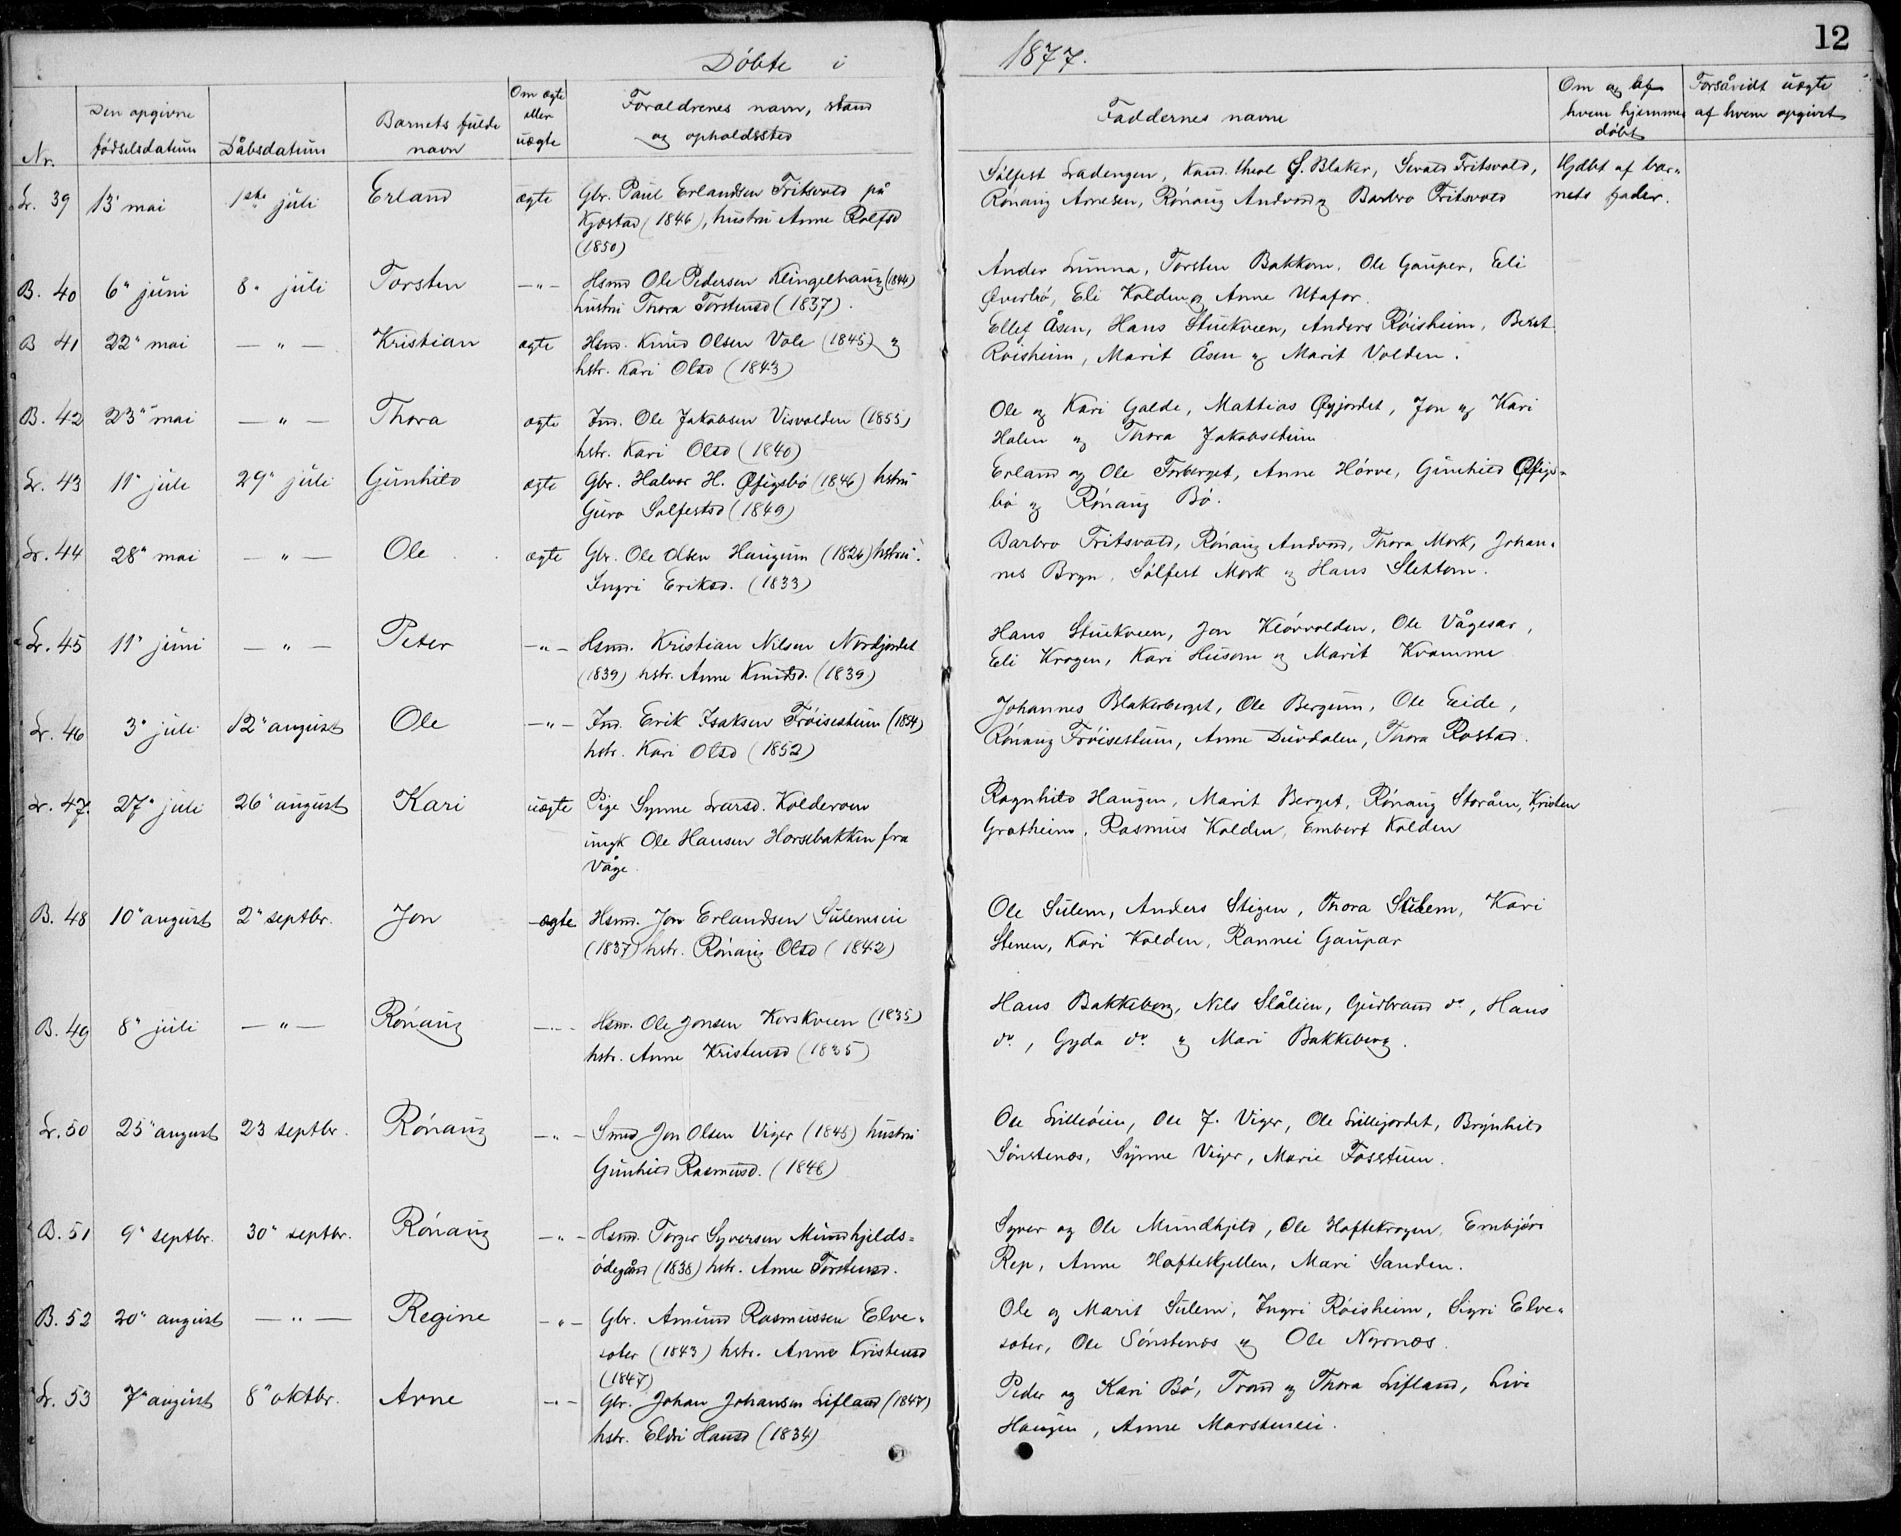 Døbte i 1877.
12
Nr.
Den opgivne fødselsdatum
Dåbsdatum
Barnets fulde navn
Om ægte eller uægte
Forældrenes navn, stand og opholdssted
Faddernes navne
Om og af hvem hjemmedøbt
Forsåvidt uægte af hvem opgivet
Lr. 39 13' mai 1ste juli Erland ægte Gbr. Paul Erlandsen Fritsvold på
Kjæstad (1846), hustru Anne Rolfsd
(1850)
Sålfest Ladengen, Kand. theol Ø. Blaker, Sevald Fritsvold,
Rønaug Arnesen, Rønaug Andvord og Barbro Fritsvold
Hjdbt af bar-
nets fader.
B. 40 6" juni 8" juli Torsten —"— Hsmd Ole Pedersen Klingelhaug (1844)
hustru Thora Torstensd (1837).
Ander Lunna, Torsten Bakkom, Ole Gauper, Eli
Øverbø, Eli Kolden og Anne Utafor.
B 41 22" mai —"— Kristian ægte Hsmd. Knud Olsen Vole (1845) og
hstr. Kari Olsd (1843)
Ellef Åsen, Hans Stuekveen, Anders Røisheim, Berit
Røisheim, Marit Åsen og Marit Volden.
B. 42 23" mai —"— Thora ægte Ind. Ole Jakobsen Visvolden (1855)
hstr. Kari Olsd (1840)
Ole og Kari Galde, Mattias Øygjordet, Jon og Kari
Holen og Thora Jakobstuen
Lr. 43 11" juli 29" juli Gunhild ægte Gbr. Halvor H. Øfigsbø (1846) hstru
Guro Solfestsd (1849)
Erland og Ole Forberget, Anne Hørve, Gunhild Øfigs-
bø og Rønaug Bø.
Lr. 44 28" mai —"— Ole ægte Gbr. Ole Olsen Haugum (1826) hstru
Ingri Eriksd. (1833)
Barbro Fritsvold, Rønaug Andvord, Thora Mork, Johan-
nes Bryn, Sålfest Mork og Hans Slettom.
Lr. 45 11" juni —"— Peter —"— Hsmd. Kristian Nilsen Nordjordet
(1839) hstr. Anne Knudsd. (1839)
Hans Stuekveen, Jon Kløvvolden, Ole Vågesar,
Eli Krogen, Kari Husom og Marit Kvamme
Lr. 46 3" juli 12" august Ole —"— Ind. Erik Isaksen Frøisestuen (1854)
hstr. Kari Olsd (1852)
Johannes Blakerberget, Ole Bergum, Ole Eide,
Rønaug Frøisestuen, Anne Duvdalen, Thora Rostad.
Lr. 47. 27" juli 26" august Kari uægte Pige Synne Larsd. Kolderven
ungk Ole Hansen Horsebakken fra
Våge
Ragnhild Haugen, Marit Berget, Rønaug Storåen, Kristen
Gratheim, Rasmus Kolden, Embert Kolden
B. 48 10" august 2" septbr. Jon ægte Hsmd. Jon Erlandsen Sulemseie
(1837) hstr. Rønaug Olsd (1842)
Ole Sulem, Anders Stigen, Thora Sulem, Kari
Stenen, Kari Kolden, Rannei Gaupar
B. 49 8" juli —"— Rønaug —"— Hsm. Ole Jonsen Korskveen (1835)
hstr. Anne Kristensd (1835)
Hans Bakkeberg, Nils Slålien, Gudbrand do, Hans
do, Gyda do og Mari Bakkeberg.
Lr. 50 25" august 23 septbr. Rønaug —"— Smed Jon Olsen Viger (1845) hustru
Gunhild Rasmusd. (1848)
Ole Lilleøien, Ole J. Viger, Ole Lillejordet, Brynhild
Sønstenæs, Synne Viger, Marie Fosstuen.
B. 51 9" septbr. 30" septbr. Rønaug —"— Hsmd. Torger Syversen Mundhjelds-
ødegård (1838) hstr. Anne Torstensd.
Syver og Ole Mundhjeld, Ole Hoftekrogen, Embjør
Rep, Anne Hofteskjellen, Mari Sanden.
B. 52 20" august —"— Regine —"— Gbr. Amund Rasmussen Elve-
sæter (1843) hstr. Anne Kristensd
(1847)
Ole og Marit Sulem, Ingri Røisheim, Sigri Elve-
sæter, Ole Sønstenæs og Ole Nyrnæs.
Lr. 53 7" august 8" oktbr. Arne —"— Gbr. Johan Johansen Lifland (1847)
hstr. Eldri Hansd (1834)
Peder og Kari Bø, Trond og Thora Lifland, Live
Haugen, Anne Marsteneie.